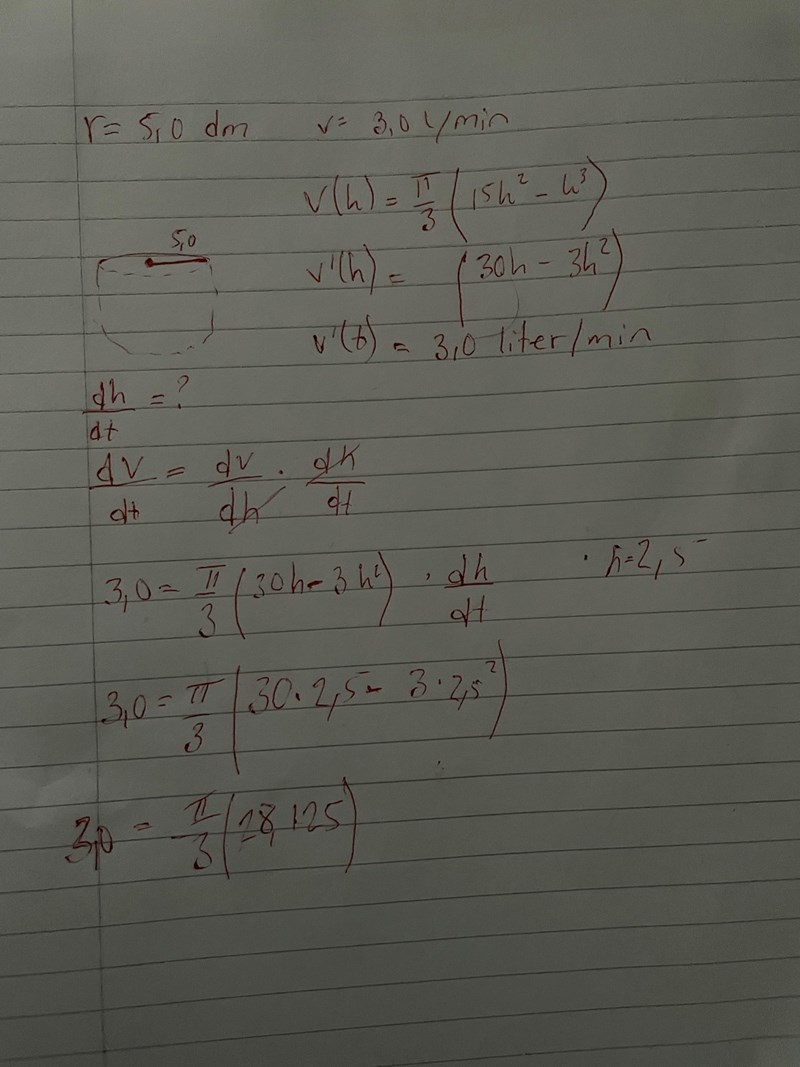 r = 5,0 dm v = 3,0 l/min
V(h) = π/3 (15h² - h³)
5,0
v'(h) = (30h - 3h²)
v'(t) = 3,0 liter/min
dh/dt = ?
dV/dt = dv/dh · dh/dt
3,0 = π/3 (30h - 3h²) · dh/dt · h=2,5
3,0 = π/3 (30·2,5 - 3·2,5²)
3,0 = π/3 (28,125)